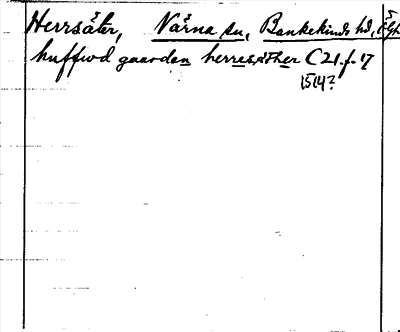 Herrsäter, Värna sn, Bankekinds hd, Ög.
huffwd gaarden herresäther C 21 f. 17
1514?